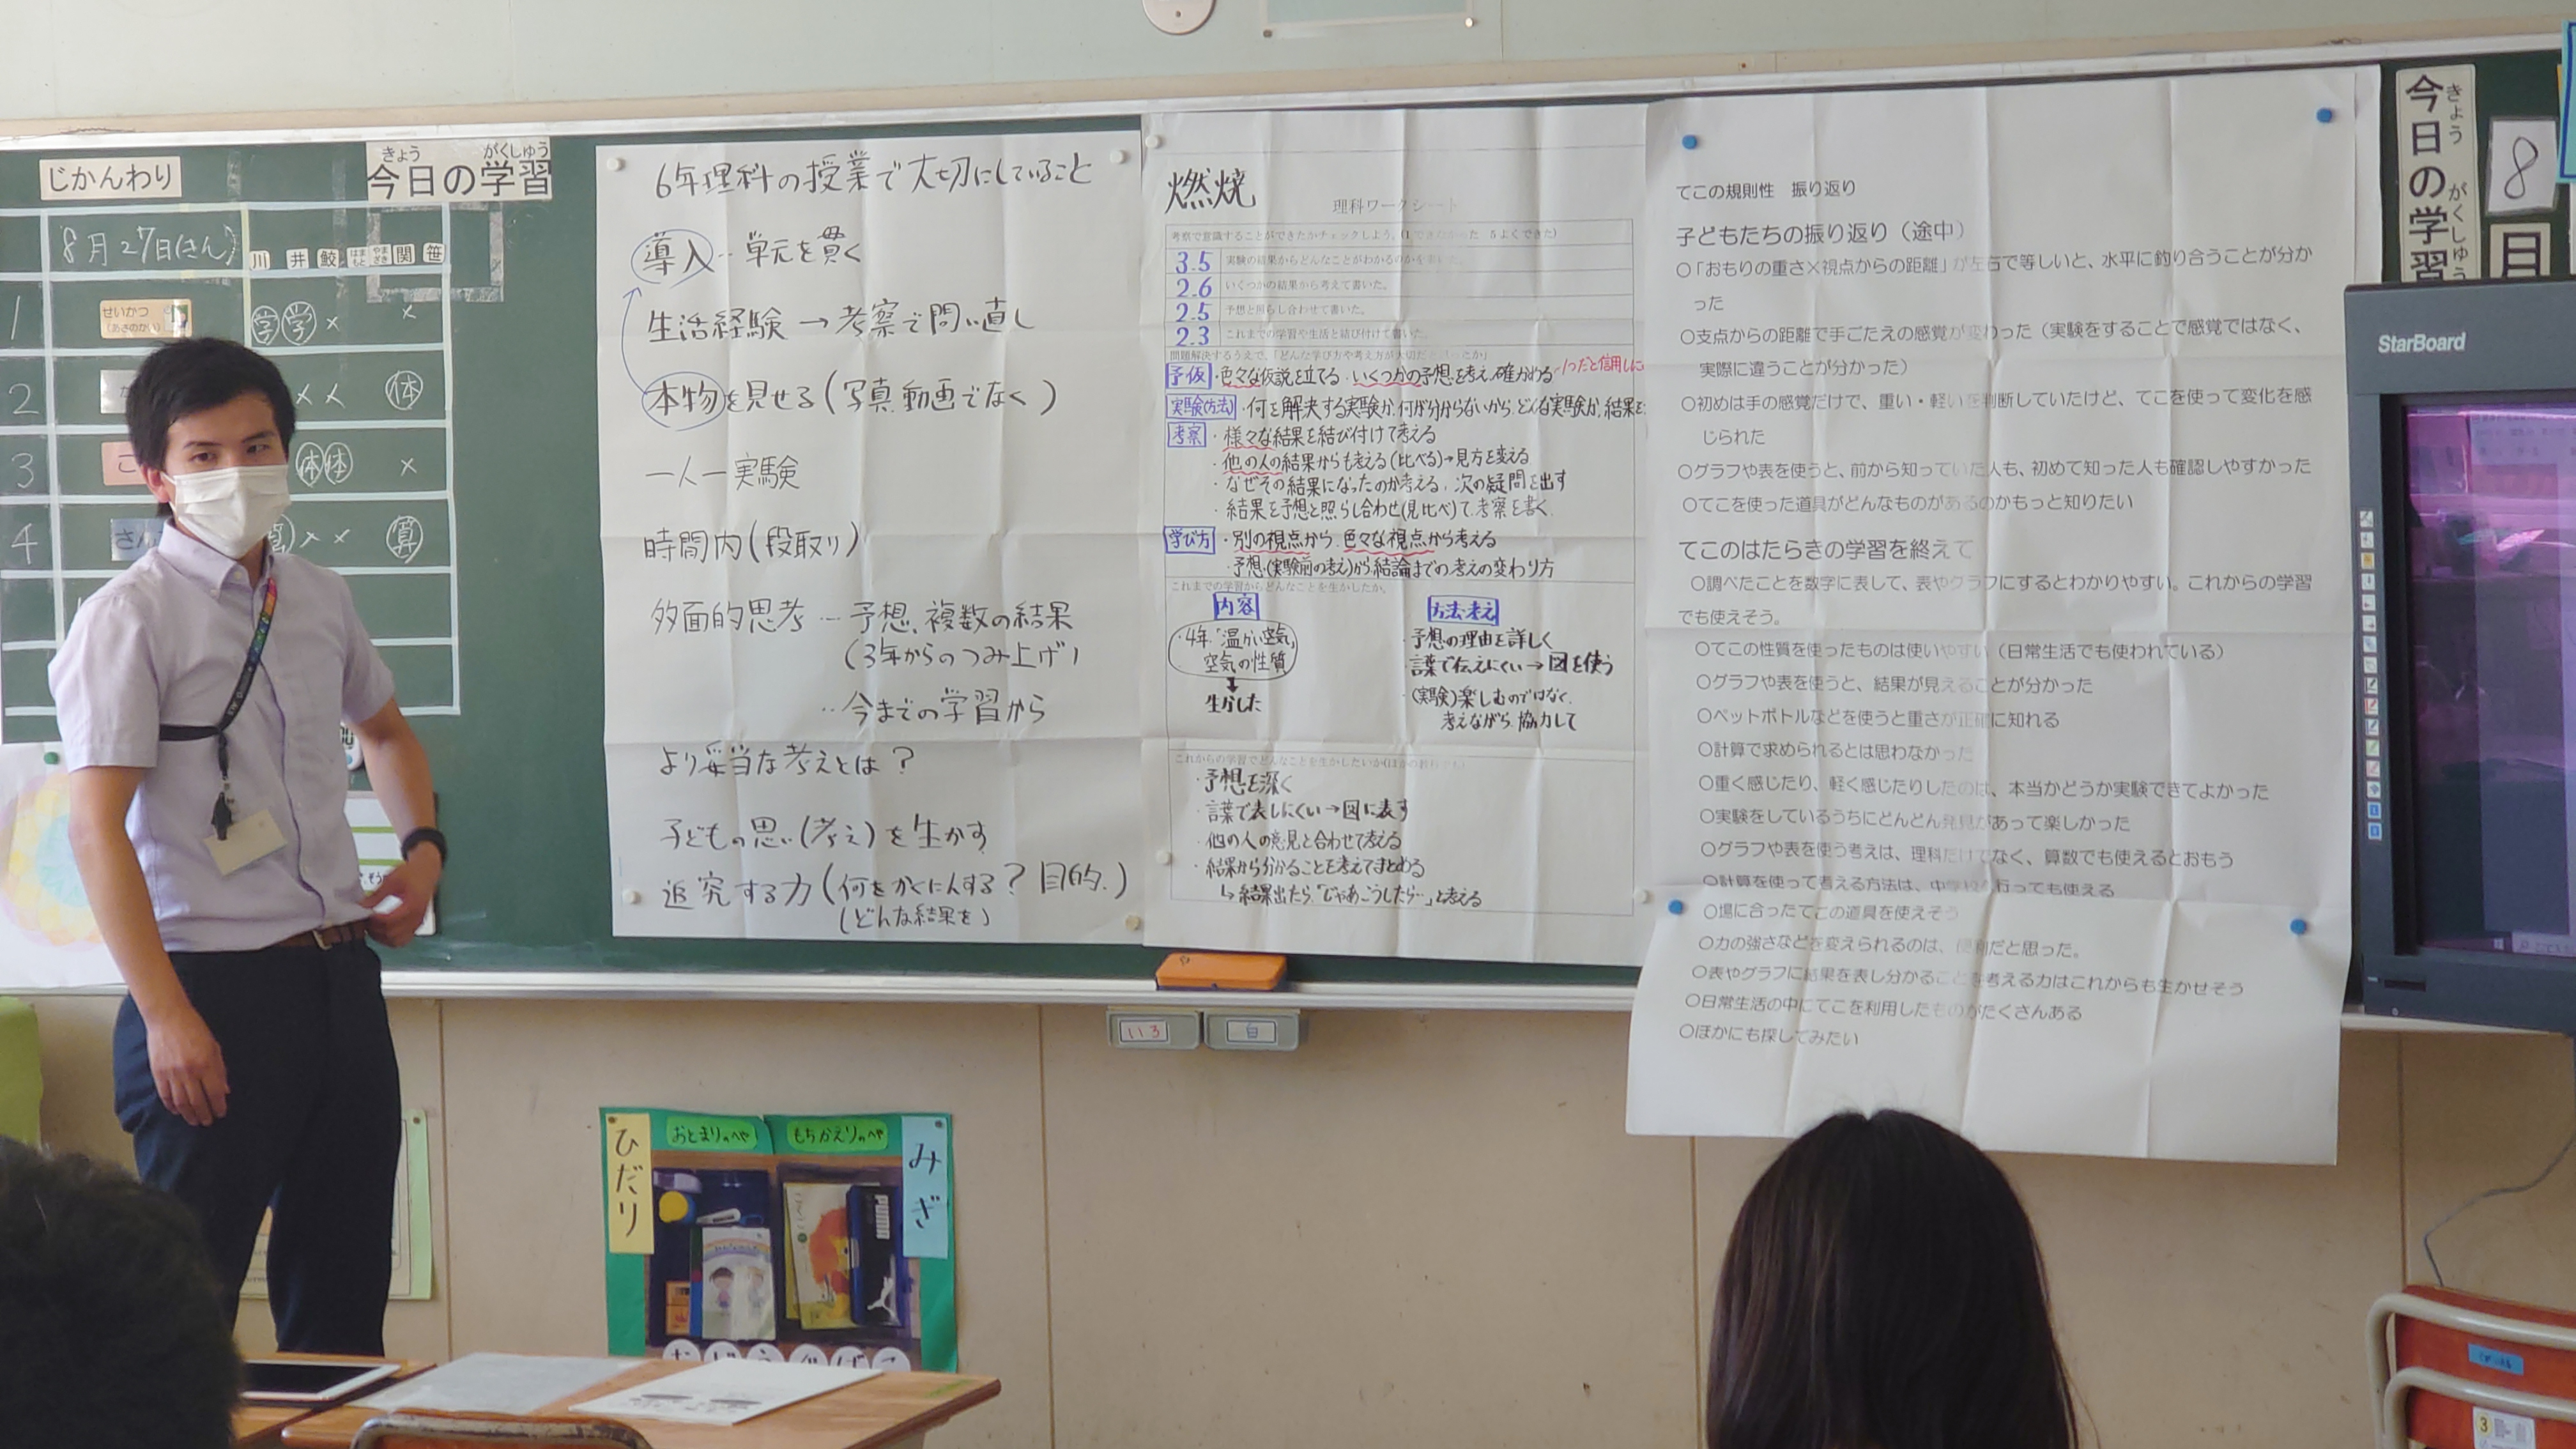 じかんわり
きょう がくしゅう
今日の学習
8月27日(きん)
川 井 鮫 はまもと やまざき 関 笹
1
せいかつ
(あさのかい)
学 学 × ×
2
× 体
3
体 体 ×
4
さん
× × 算
6年理科の授業で大切にしていること
導入‥単元を貫く
生活経験→考察で問い直し
本物を見せる(写真、動画でなく)
一人一実験
時間内(段取り)
多面的思考…予想、複数の結果
(3年からのつみ上げ)
‥今までの学習から
より妥当な考えとは?
子どもの思い(考え)を生かす
追究する力(何をかくにんする?目的.)
(どんな結果を)
燃焼
理科ワークシート
考察で意識することができたかチェックしよう。
3.5 実験の結果からどんなことがわかるのかを
2.6 いくつかの結果から考えて書いた。
2.5 予想と照らし合わせて書いた。
2.3 これまでの学習や生活と結び付けて書いた。
問題解決するうえで、「どんな学び方や考え方が大切だ
予仮・色々な仮説を立てる・いくつかの予想を考え、確かめる
1つだと信用しに
実験(方法)・何を解決する実験か、何が分からないから、どんな実験か、結果を
考察・様々な結果を結び付けて考える
・他の人の結果からも考える(比べる)→見方を変える
・なぜその結果になったのか考える、次の疑問を出す
・結果を予想と照らし合わせ(見比べ)て考察を書く
学び方・別の視点から、色々な視点から考える
・予想(実験前の考え)から結論までの考えの変わり方
これまでの学習からどんなことを生かしたか。
内容
・4年「温かい空気」
空気の性質
↓
生かした
方法・考え
・予想の理由を詳しく
・言葉で伝えにくい→図を使う
・(実験)楽しむのではなく、
考えながら、協力して
これからの学習でどんなことを生かしたいか
・予想を深く
・言葉で表しにくい→図に表す
・他の人の意見と合わせて考える
・結果から分かることを考えてまとめる
↳結果出たら「じゃあこうしたら…」と考える
てこの規則性 振り返り
子どもたちの振り返り(途中)
○「おもりの重さ×視点からの距離」が左右で等しいと、水平に釣り合うことが分か
った
○支点からの距離で手ごたえの感覚が変わった(実験をすることで感覚ではなく、
実際に違うことが分かった)
○初めは手の感覚だけで、重い・軽いを判断していたけど、てこを使って変化を感
じられた
○グラフや表を使うと、前から知っていた人も、初めて知った人も確認しやすかった
○てこを使った道具がどんなものがあるのかもっと知りたい
てこのはたらきの学習を終えて
○調べたことを数字に表して、表やグラフにするとわかりやすい。これからの学習
でも使えそう。
○てこの性質を使ったものは使いやすい(日常生活でも使われている)
○グラフや表を使うと、結果が見えることが分かった
○ペットボトルなどを使うと重さが正確に知れる
○計算で求められるとは思わなかった
○重く感じたり、軽く感じたりしたのは、本当かどうか実験できてよかった
○実験をしているうちにどんどん発見があって楽しかった
○グラフや表を使う考えは、理科だけでなく、算数でも使えるとおもう
○計算を使って考える方法は、中学校へ行っても使える
○場に合ったてこの道具を使えそう
○力の強さなどを変えられるのは、便利だと思った。
○表やグラフに結果を表し分かることを考える力はこれからも生かせそう
○日常生活の中にてこを利用したものがたくさんある
○ほかにも探してみたい
きょう がくしゅう
今日の学習
8
月
StarBoard
いろ
白
ひだり
おとまりのへや
もちかえりのへや
みぎ
おどうぐばこ
3